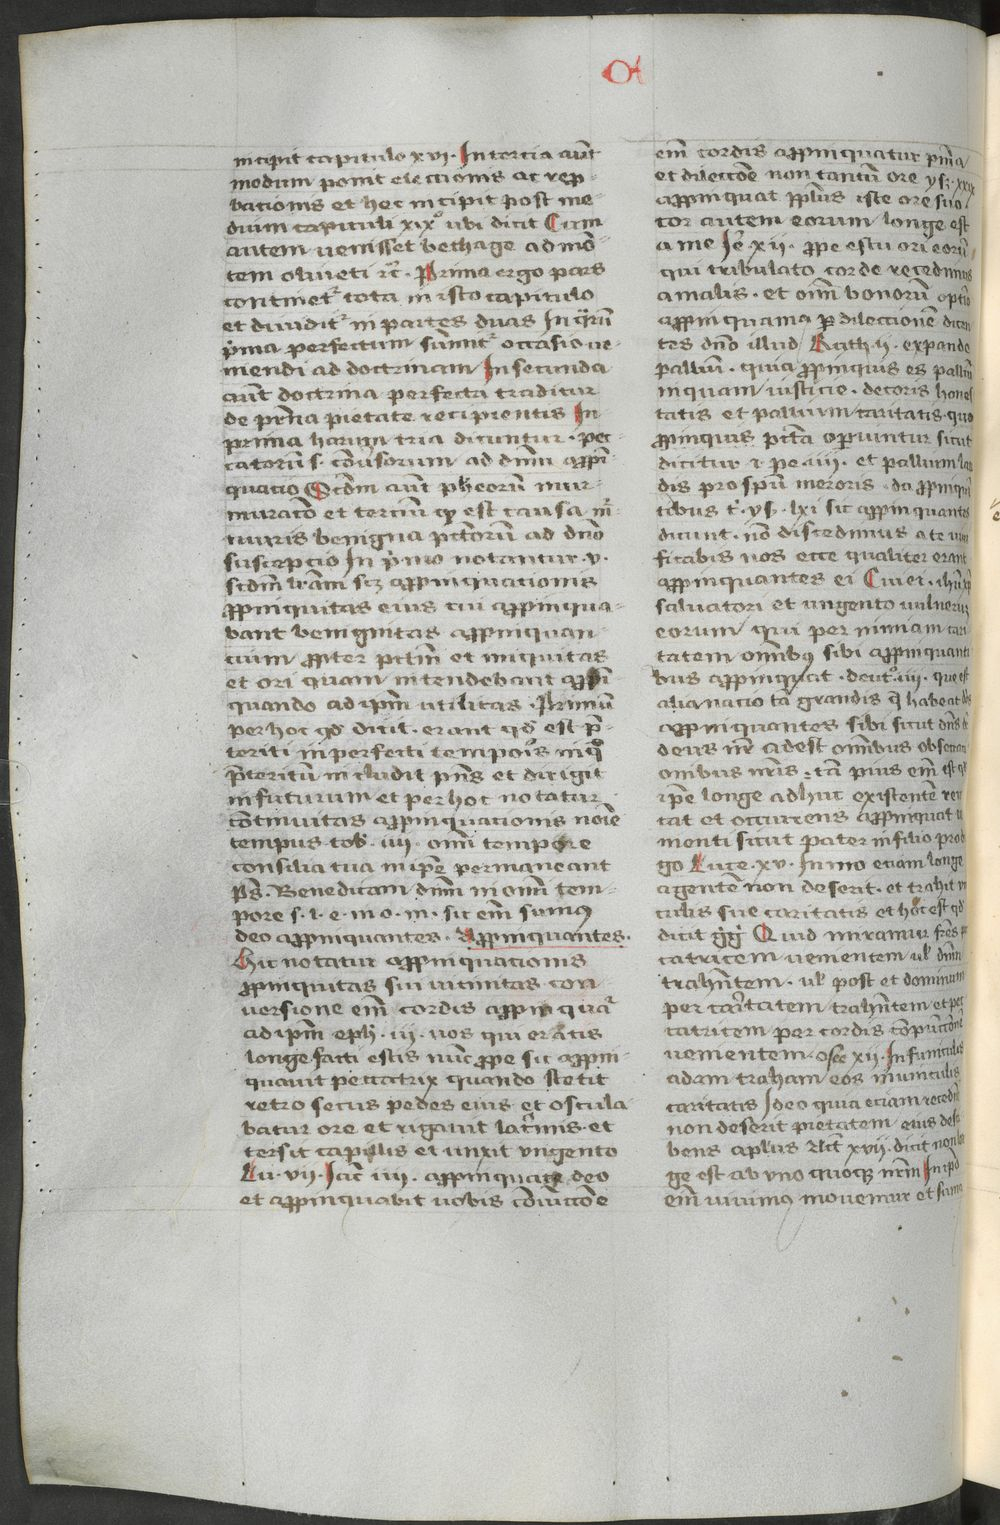 incipit capitulo xvi. In tercia aūt
modum ponit electionis ac rep-
bacionis et hec incipit post me
dium capituli xixº ubi dicit Cum
autem uenisset bethage ad mō
tem oliueti rc̄. Prima ergo pars
continet᷑ tota in isto capitulo
et diuidit᷑ in partes duas In q̄rū
p̄ma perfectum sumit᷑ occasio ue-
niendi ad doctrinam In secunda
aūt doctrina perfecta traditur
de pīna pietate recipientis In
prima harum tria dicuntur. pec-
catorū s. cōuersorum ad dnm̄ appī-
quacio Scdm aūt phʼeorū mur-
muracō et terciū qp̄ est causa m̄-
muris benigna pctōrū ad dnō
suscepcio In p̄mo notantur .v.
scdm lr̄am scz appinquacionis
ppinquitas eius cui appinqua-
bant benignitas appinquan-
cium ppter pctm̄ et iniquitas
et ori quam intendebant appī
quando ad ipm̄ utilitas. Primū
per hoc qd̄ dicit. erant qd̄ est p̄-
teriti inperfecti temporis in qº
p̄teritū includit pn̄s et dirigit
in futurum et per hoc notatur
cōtinuitas appinquacionis noīe
tempus tob. iiii. omi tempore
consilia tua in ipē permaneant
ps̄. Benedicam dnm̄ in omī tem-
pore s. l. e. in o. m. sic em̄ sumꝰ
deo appinquantes. Appinquantes.
Hic notatur appinquacionis
ppinquitas siu uicinitas con
uersione em̄ cordis appinquat᷑
ad ipm̄ eph. iii. uos qui eratis
longe facti estis nūc ppe sic appin-
quauit peccatrix quando stetit
retro secus pedes eius et oscula
batur ore et rigauit lac̄mis. et
tersit capillis et unxit ungento
Lu. vii. Iac̄ iiii. appinquate deo
et appinquabit uobis cōuiccōe
em̄ cordis appinquatur pīna
et dileccōe non tantū ore ys. xxix
appinquat ppl̄us iste ore suo
cor autem eorum longe est
a me Ie᷑ xii. ppe es tu ori eorū
qui tribulato corde recedimus
a malis. et oīm bonorū optīo
appinquamꝰ per dileccionē dicen
tes dn̄o illud Ruth. ii. expande
palliū. quia ppinquus es palliū
inquam iusticie. decoris hones
tatis et pallium caritatis. quo
ppinquis pctā operiuntur sicut
dicitur i pe. iiii. et pallium lau
dis pro spū meroris. da ppinquā
tibus t᷑. ys. lxi sic appinquantes
dicunt. nō discedimus a te uiui
ficabis nos ecce qualiter erant
appinquantes ei Cui ei. ihū xp̄o
saluatori et ungento uulnerū
eorum qui per nimiam cari
tatem omībꝰ sibi appinquanti
bus appinquat. deut᷑. iiii. que est
alia nacio tā grandis q̄ habeat deos
appinquantes sibi sicut dn̄s
deus nr̄ adest omībus obsecra
cionibus nr̄is. tā pius em̄ est qd̄
ipē longe adhuc existentē
tat et occurrens appinquat u
nienti sicut pater in filio prodi
go Luce. xv. Immo eciam longe
agentē non deserit. et trahit vin
culis sue caritatis et hoc est qd̄
dicit g̅g̅ Quid miramur frēs
catricem uenientem ul̄ dnm̄
trahn̄tem. ul̄ post et dominum
per caritatem trahn̄tem et pec
catricem per cordis cōpuncōnē
uenientem. osee xii. In funiculis
adam traham eos in uinculis
caritatis Ideo quia eciam recedn̄t
non deserit pietatem eius descri
bens apl̄us Act̄ xvii. dicit non lon
ge est ab vno quoqꝫ nr̄m In ipō
em̄ uiuimꝰ mouemur et sumꝰ